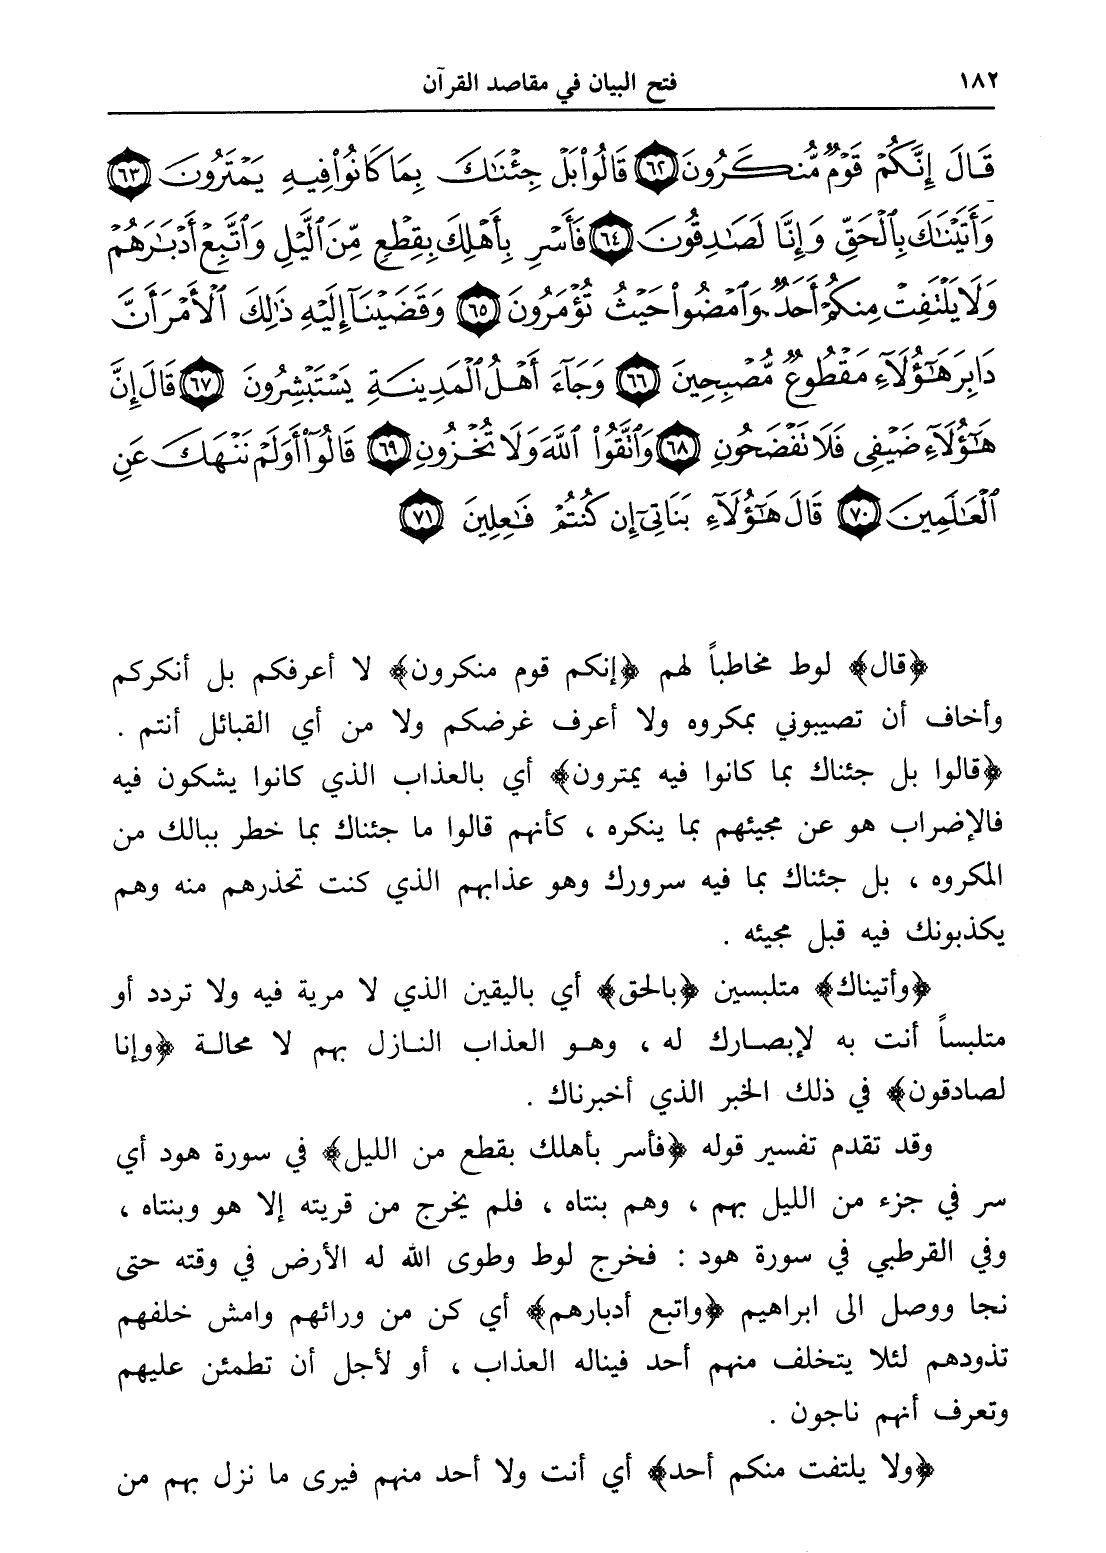 ١٨٢ فتح البيان في مقاصد القرآن
قَالَ إِنَّكُمْ قَوْمٌ مُّنكَرُونَ ٦٢ قَالُوا۟ بَلْ جِئْنَٰكَ بِمَا كَانُوا۟ فِيهِ يَمْتَرُونَ ٦٣
وَأَتَيْنَٰكَ بِالْحَقِّ وَإِنَّا لَصَٰدِقُونَ ٦٤ فَأَسْرِ بِأَهْلِكَ بِقِطْعٍ مِّنَ ٱلَّيْلِ وَٱتَّبِعْ أَدْبَٰرَهُمْ
وَلَا يَلْتَفِتْ مِنكُمْ أَحَدٌ وَٱمْضُوا۟ حَيْثُ تُؤْمَرُونَ ٦٥ وَقَضَيْنَآ إِلَيْهِ ذَٰلِكَ ٱلْأَمْرَ أَنَّ
دَابِرَ هَٰٓؤُلَآءِ مَقْطُوعٌ مُّصْبِحِينَ ٦٦ وَجَآءَ أَهْلُ ٱلْمَدِينَةِ يَسْتَبْشِرُونَ ٦٧ قَالَ إِنَّ
هَٰٓؤُلَآءِ ضَيْفِى فَلَا تَفْضَحُونِ ٦٨ وَٱتَّقُوا۟ ٱللَّهَ وَلَا تُخْزُونِ ٦٩ قَالُوٓا۟ أَوَلَمْ نَنْهَكَ عَنِ
ٱلْعَٰلَمِينَ ٧٠ قَالَ هَٰٓؤُلَآءِ بَنَاتِىٓ إِن كُنتُمْ فَٰعِلِينَ ٧١
﴿قال﴾ لوط مخاطباً لهم ﴿إنكم قوم منكرون﴾ لا أعرفكم بل أنكركم
وأخاف أن تصيبوني بمكروه ولا أعرف غرضكم ولا من أي القبائل أنتم .
﴿قالوا بل جئناك بما كانوا فيه يمترون﴾ أي بالعذاب الذي كانوا يشكون فيه
فالإضراب هو عن مجيئهم بما ينكره ، كأنهم قالوا ما جئناك بما خطر ببالك من
المكروه ، بل جئناك بما فيه سرورك وهو عذابهم الذي كنت تحذرهم منه وهم
يكذبونك فيه قبل مجيئه .
﴿وأتيناك﴾ متلبسين ﴿بالحق﴾ أي باليقين الذي لا مرية فيه ولا تردد أو
متلبساً أنت به لإبصارك له ، وهو العذاب النازل بهم لا محالة ﴿وإنا
لصادقون﴾ في ذلك الخبر الذي أخبرناك .
وقد تقدم تفسير قوله ﴿فأسر بأهلك بقطع من الليل﴾ في سورة هود أي
سر في جزء من الليل بهم ، وهم بنتاه ، فلم يخرج من قريته إلا هو وبنتاه ،
وفي القرطبي في سورة هود : فخرج لوط وطوى الله له الأرض في وقته حتى
نجا ووصل الى ابراهيم ﴿واتبع أدبارهم﴾ أي كن من ورائهم وامش خلفهم
تذودهم لئلا يتخلف منهم أحد فيناله العذاب ، أو لأجل أن تطمئن عليهم
وتعرف أنهم ناجون .
﴿ولا يلتفت منكم أحد﴾ أي أنت ولا أحد منهم فيرى ما نزل بهم من